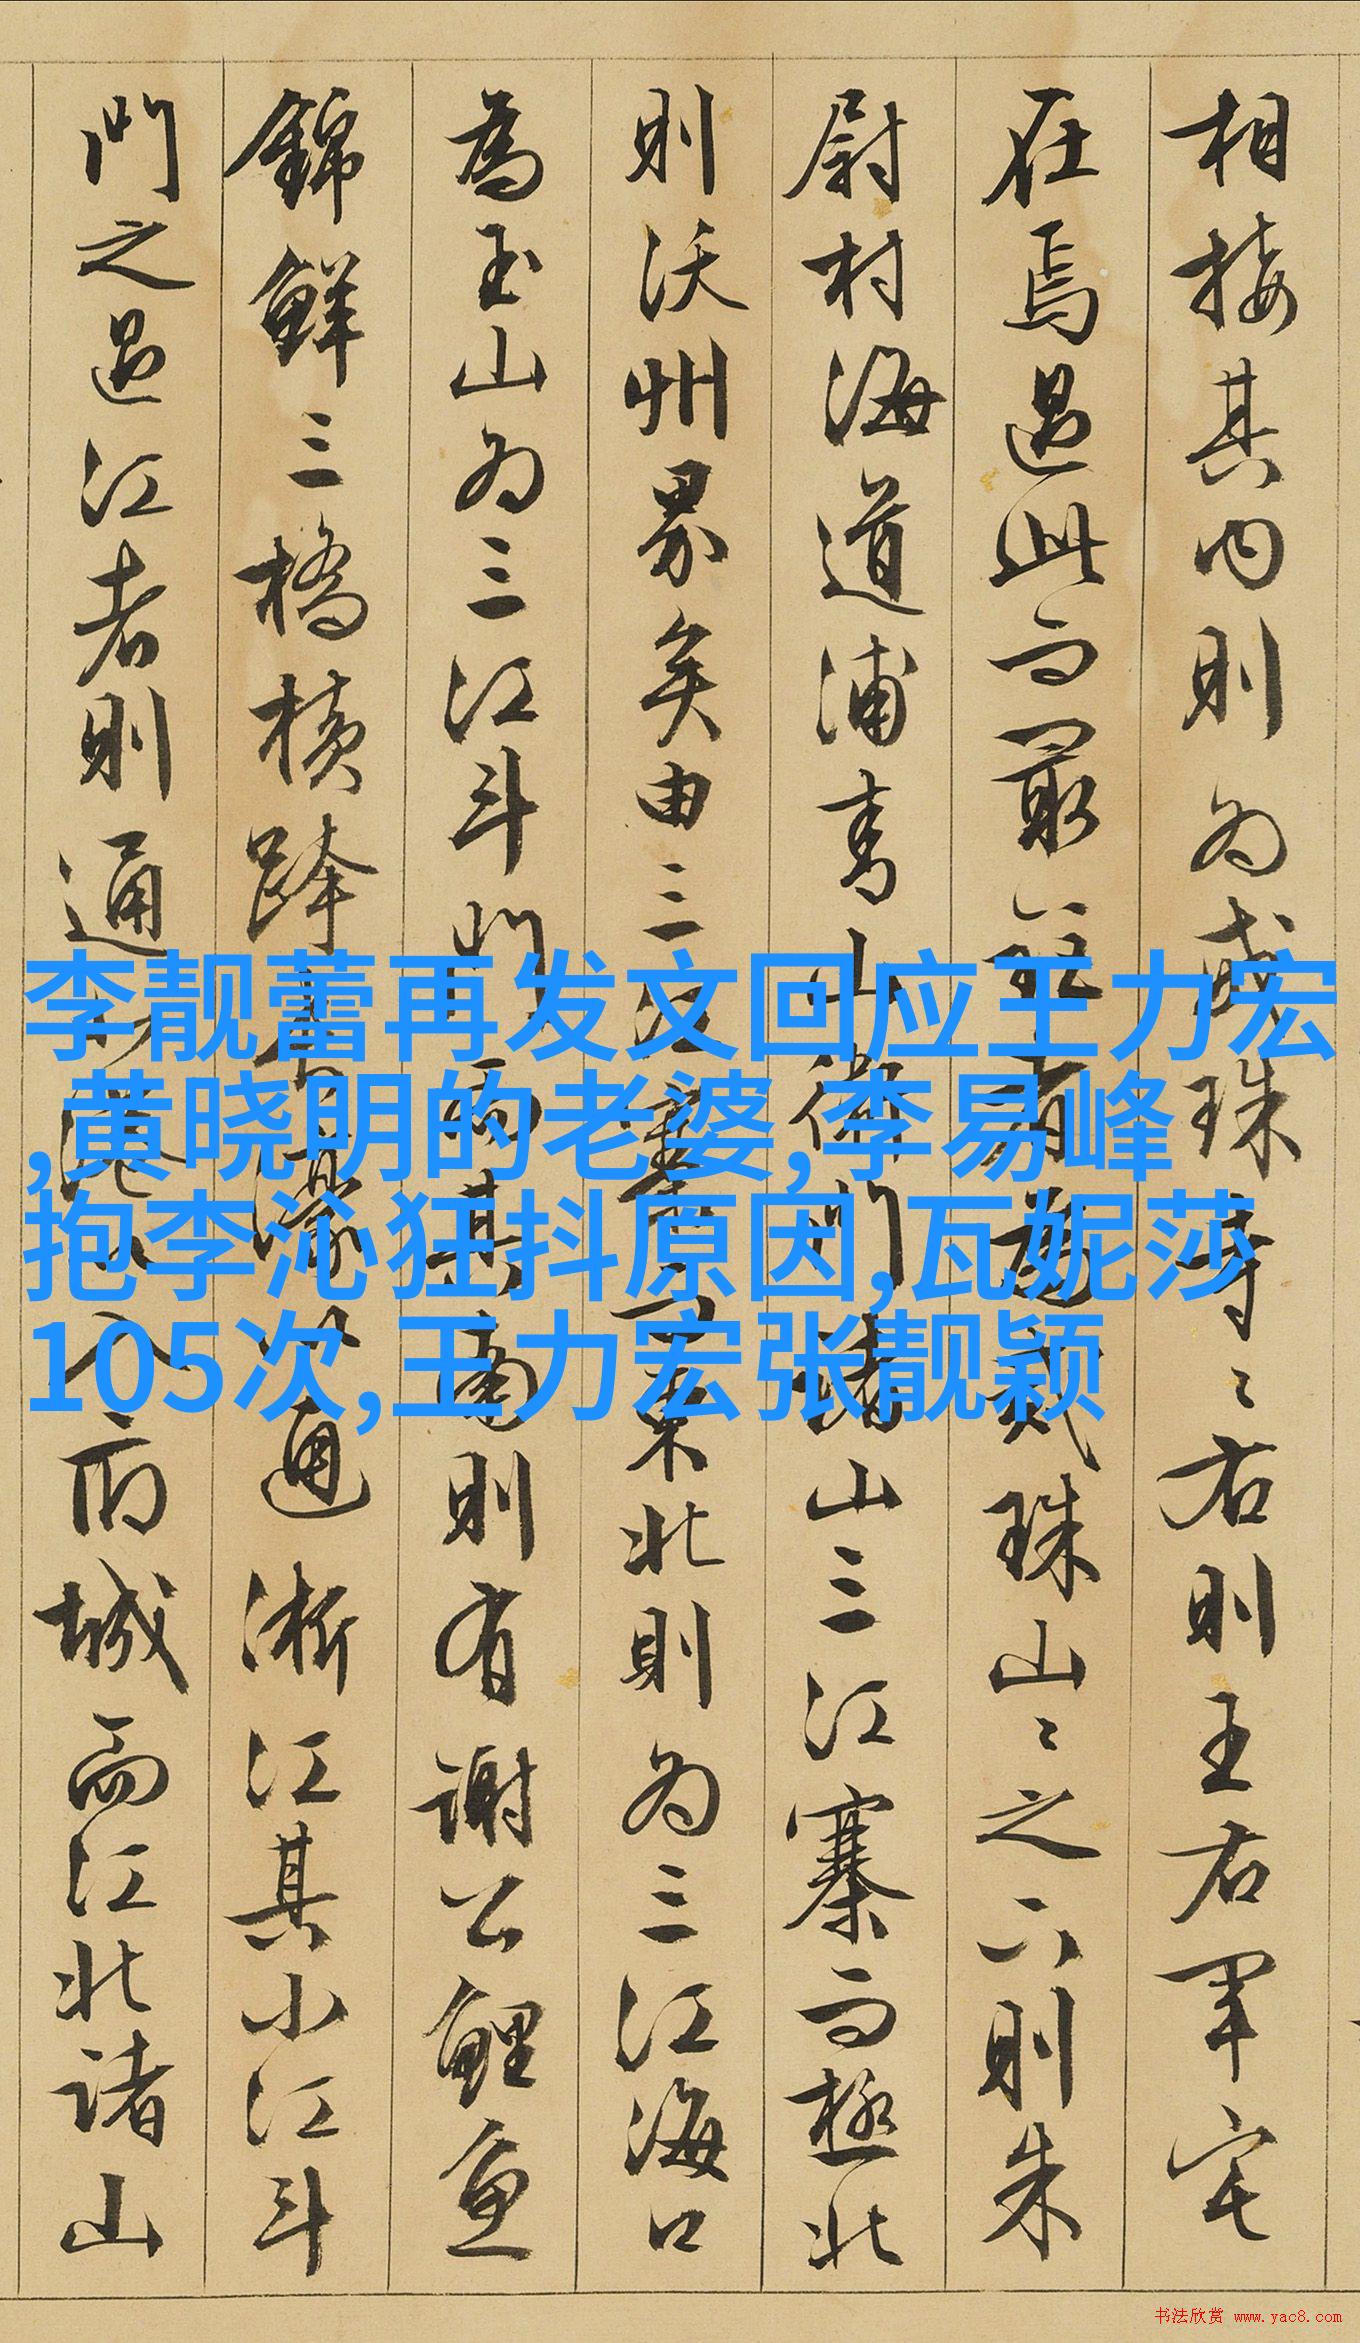 相接其內則為戒珠寺〻右則王右軍宅
在焉過此而最者為戒珠山〻之下則朱
尉村海道浦青山衛門諸山三江寨而極北
則沃州界矣由三江寨而東北則為三江海口
為玉山為三江斗門而其南則有謝公鯉魚
錦鮮三橋橫跨以通浙江其小江斗
門之過江者則通入府城而江北諸山
李靓蕾再发文回应王力宏
,黄晓明的老婆,李易峰
抱李沁狂抖原因,瓦妮莎
105次,王力宏张靓颖
书法欣赏 www.yac8.com